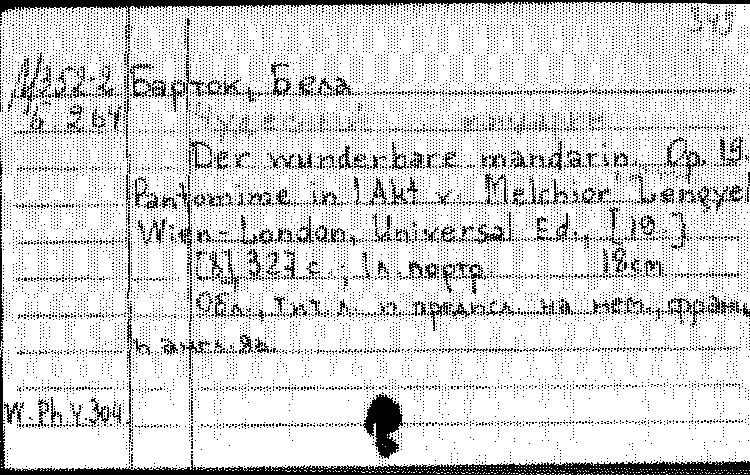 Барток, Бела
Чудесный мандарин
Der wunderbare mandarin. Op. 19.
Pantomime in 1 Akt v. Melchior Lengyel
Wien-London, Universal Ed., [19 . ]
327 с.; 1 л. портр. 18cm
Обл., тит. л. и предисл. на нем., франц.
и англ. яз.
W. Ph. V 304